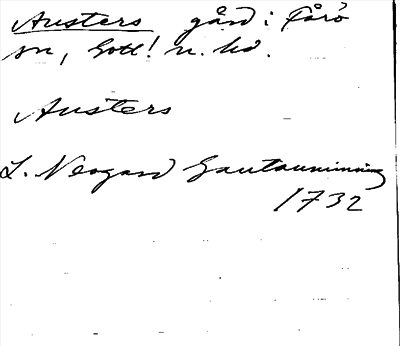 Austers gård i Fårö
sn, Gotl. n. hd.
Austers
L. Neogard Gautauminning
1732